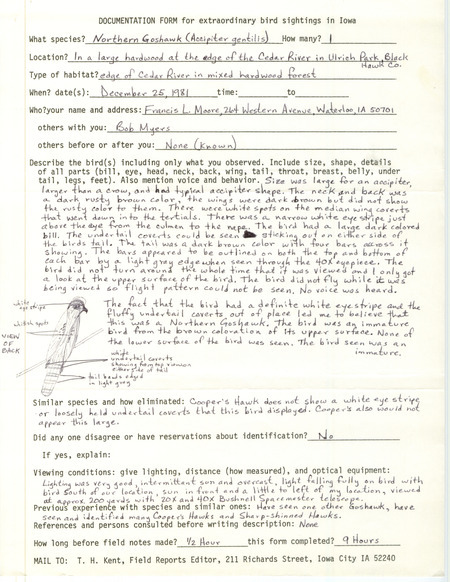 DOCUMENTATION FORM for extraordinary bird sightings in Iowa
What species? Northern Goshawk (Accipiter gentilis) How many? 1
Location? In a large hardwood at the edge of the Cedar River in Ulrich Park, Black
Hawk Co.
Type of habitat? edge of Cedar River in mixed hardwood forest
When? date(s): December 25, 1981 time: to
Who? your name and address: Francis L. Moore, 264 Western Avenue, Waterloo, IA 50701
others with you: Bob Myers
others before or after you: None (known)
Describe the bird(s) including only what you observed. Include size, shape, details
of all parts (bill, eye, head, neck, back, wing, tail, throat, breast, belly, under
tail, legs, feet). Also mention voice and behavior. Size was large for an accipiter,
larger than a crow, and had typical accipiter shape. The neck and back was
a dark rusty brown color, the wings were dark brown but did not show
the rusty color to them. There were white spots on the median wing coverts
that went down into the tertials. There was a narrow white eyestripe just
above the eye from the culmen to the nape. The bird had a large dark colored
bill. The undertail coverts could be seen sticking out on either side of
the birds tail. The tail was a dark brown color with four bars across it
showing. The bars appeared to be outlined on both the top and bottom of
each bar by a light gray edge when seen through the 40X eyepiece. The
bird did not turn around the whole time that it was viewed and I only got
a look at the upper surface of the bird. The bird did not fly while it was
being viewed so flight pattern could not be seen. No voice was heard.
The fact that the bird had a definite white eyestripe and the
fluffy undertail coverts out of place led me to believe that
this was a Northern Goshawk. The bird was an immature
bird from the brown coloration of its upper surface. None of
the lower surface of the bird was seen. The bird seen was an
immature.
white
eye stripe
whitish spots
VIEW
OF
BACK
white
undertail coverts
showing from top view on
either side of tail
tail bands edged
in light gray
Similar species and how eliminated: Cooper's Hawk does not show a white eye stripe
or loosely held undertail coverts that this bird displayed. Cooper's also would not
appear this large.
Did any one disagree or have reservations about identification? No
If yes, explain:
Viewing conditions: give lighting, distance (how measured), and optical equipment:
Lighting was very good, intermittent sun and overcast, light falling fully on bird with
bird south of our location, sun in front and a little to left of my location, viewed
at approx. 200 yards with 20X and 40X Bushnell Spacemaster telescope.
Previous experience with species and similar ones: Have seen one other Goshawk, have
seen and identified many Cooper's Hawks and Sharp-shinned Hawks.
References and persons consulted before writing description: None
How long before field notes made? 1/2 Hour this form completed? 9 Hours
MAIL TO: T. H. Kent, Field Reports Editor, 211 Richards Street, Iowa City IA 52240